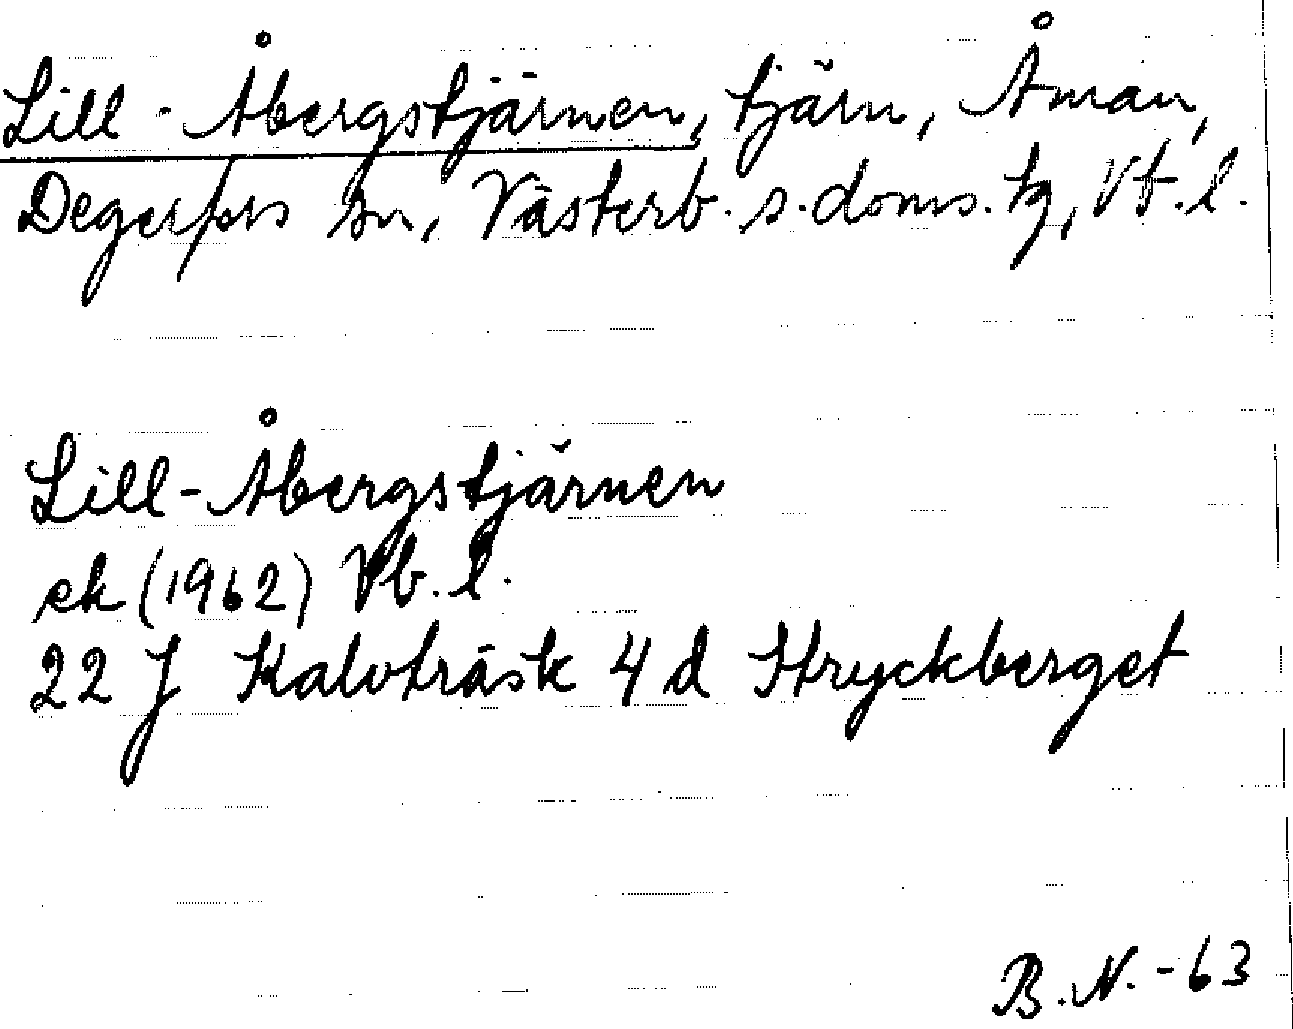 Lill-Åbergstjärnen, tjärn, Åman,
Degerfors sn, Västerb. s. doms. tg, Vb. l.
Lill-Åbergstjärnen
ek (1962) Vb. l.
22 J Kalvträsk 4 d Stryckberget
B.N. -63